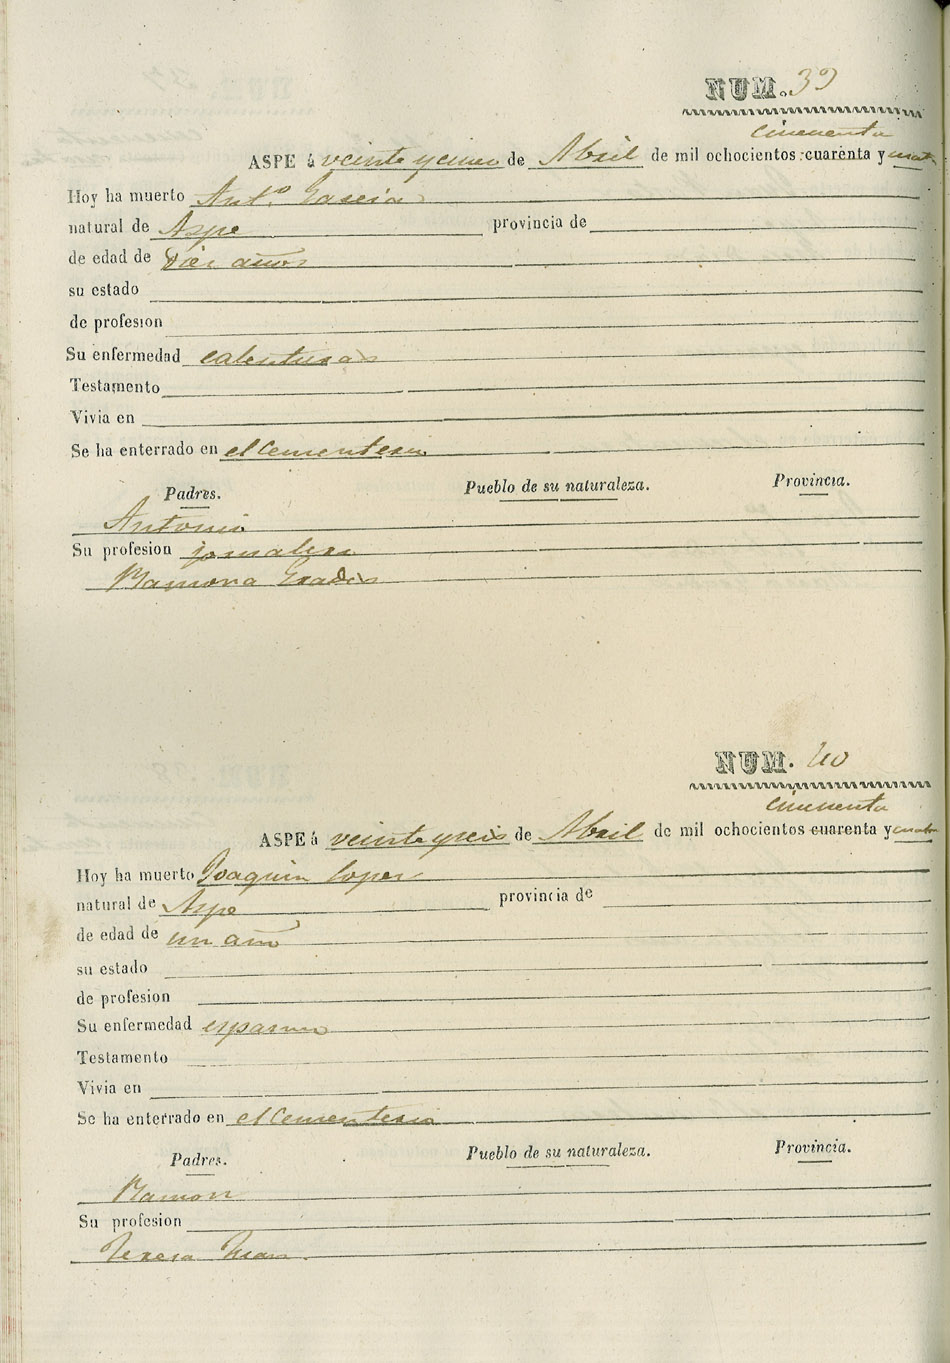 NUM. 39
cincuenta
ASPE á veinte y cinco de Abril de mil ochocientos cuarenta y cuatro
Hoy ha muerto Ant.º Garcia
natural de Aspe provincia de
de edad de diez años
su estado
de profesion
Su enfermedad calenturas
Testamento
Vivia en
Se ha enterrado en el Cementerio
Padres. Pueblo de su naturaleza. Provincia.
Antonio
Su profesion jornalero
Ramona
NUM. 40
cincuenta
ASPE á veinte y seis de Abril de mil ochocientos cuarenta y cuatro
Hoy ha muerto Joaquin Lopez
natural de Aspe provincia de
de edad de un año
su estado
de profesion
Su enfermedad espasmo
Testamento
Vivia en
Se ha enterrado en el Cementerio
Padres. Pueblo de su naturaleza. Provincia.
Ramon
Su profesion
Teresa